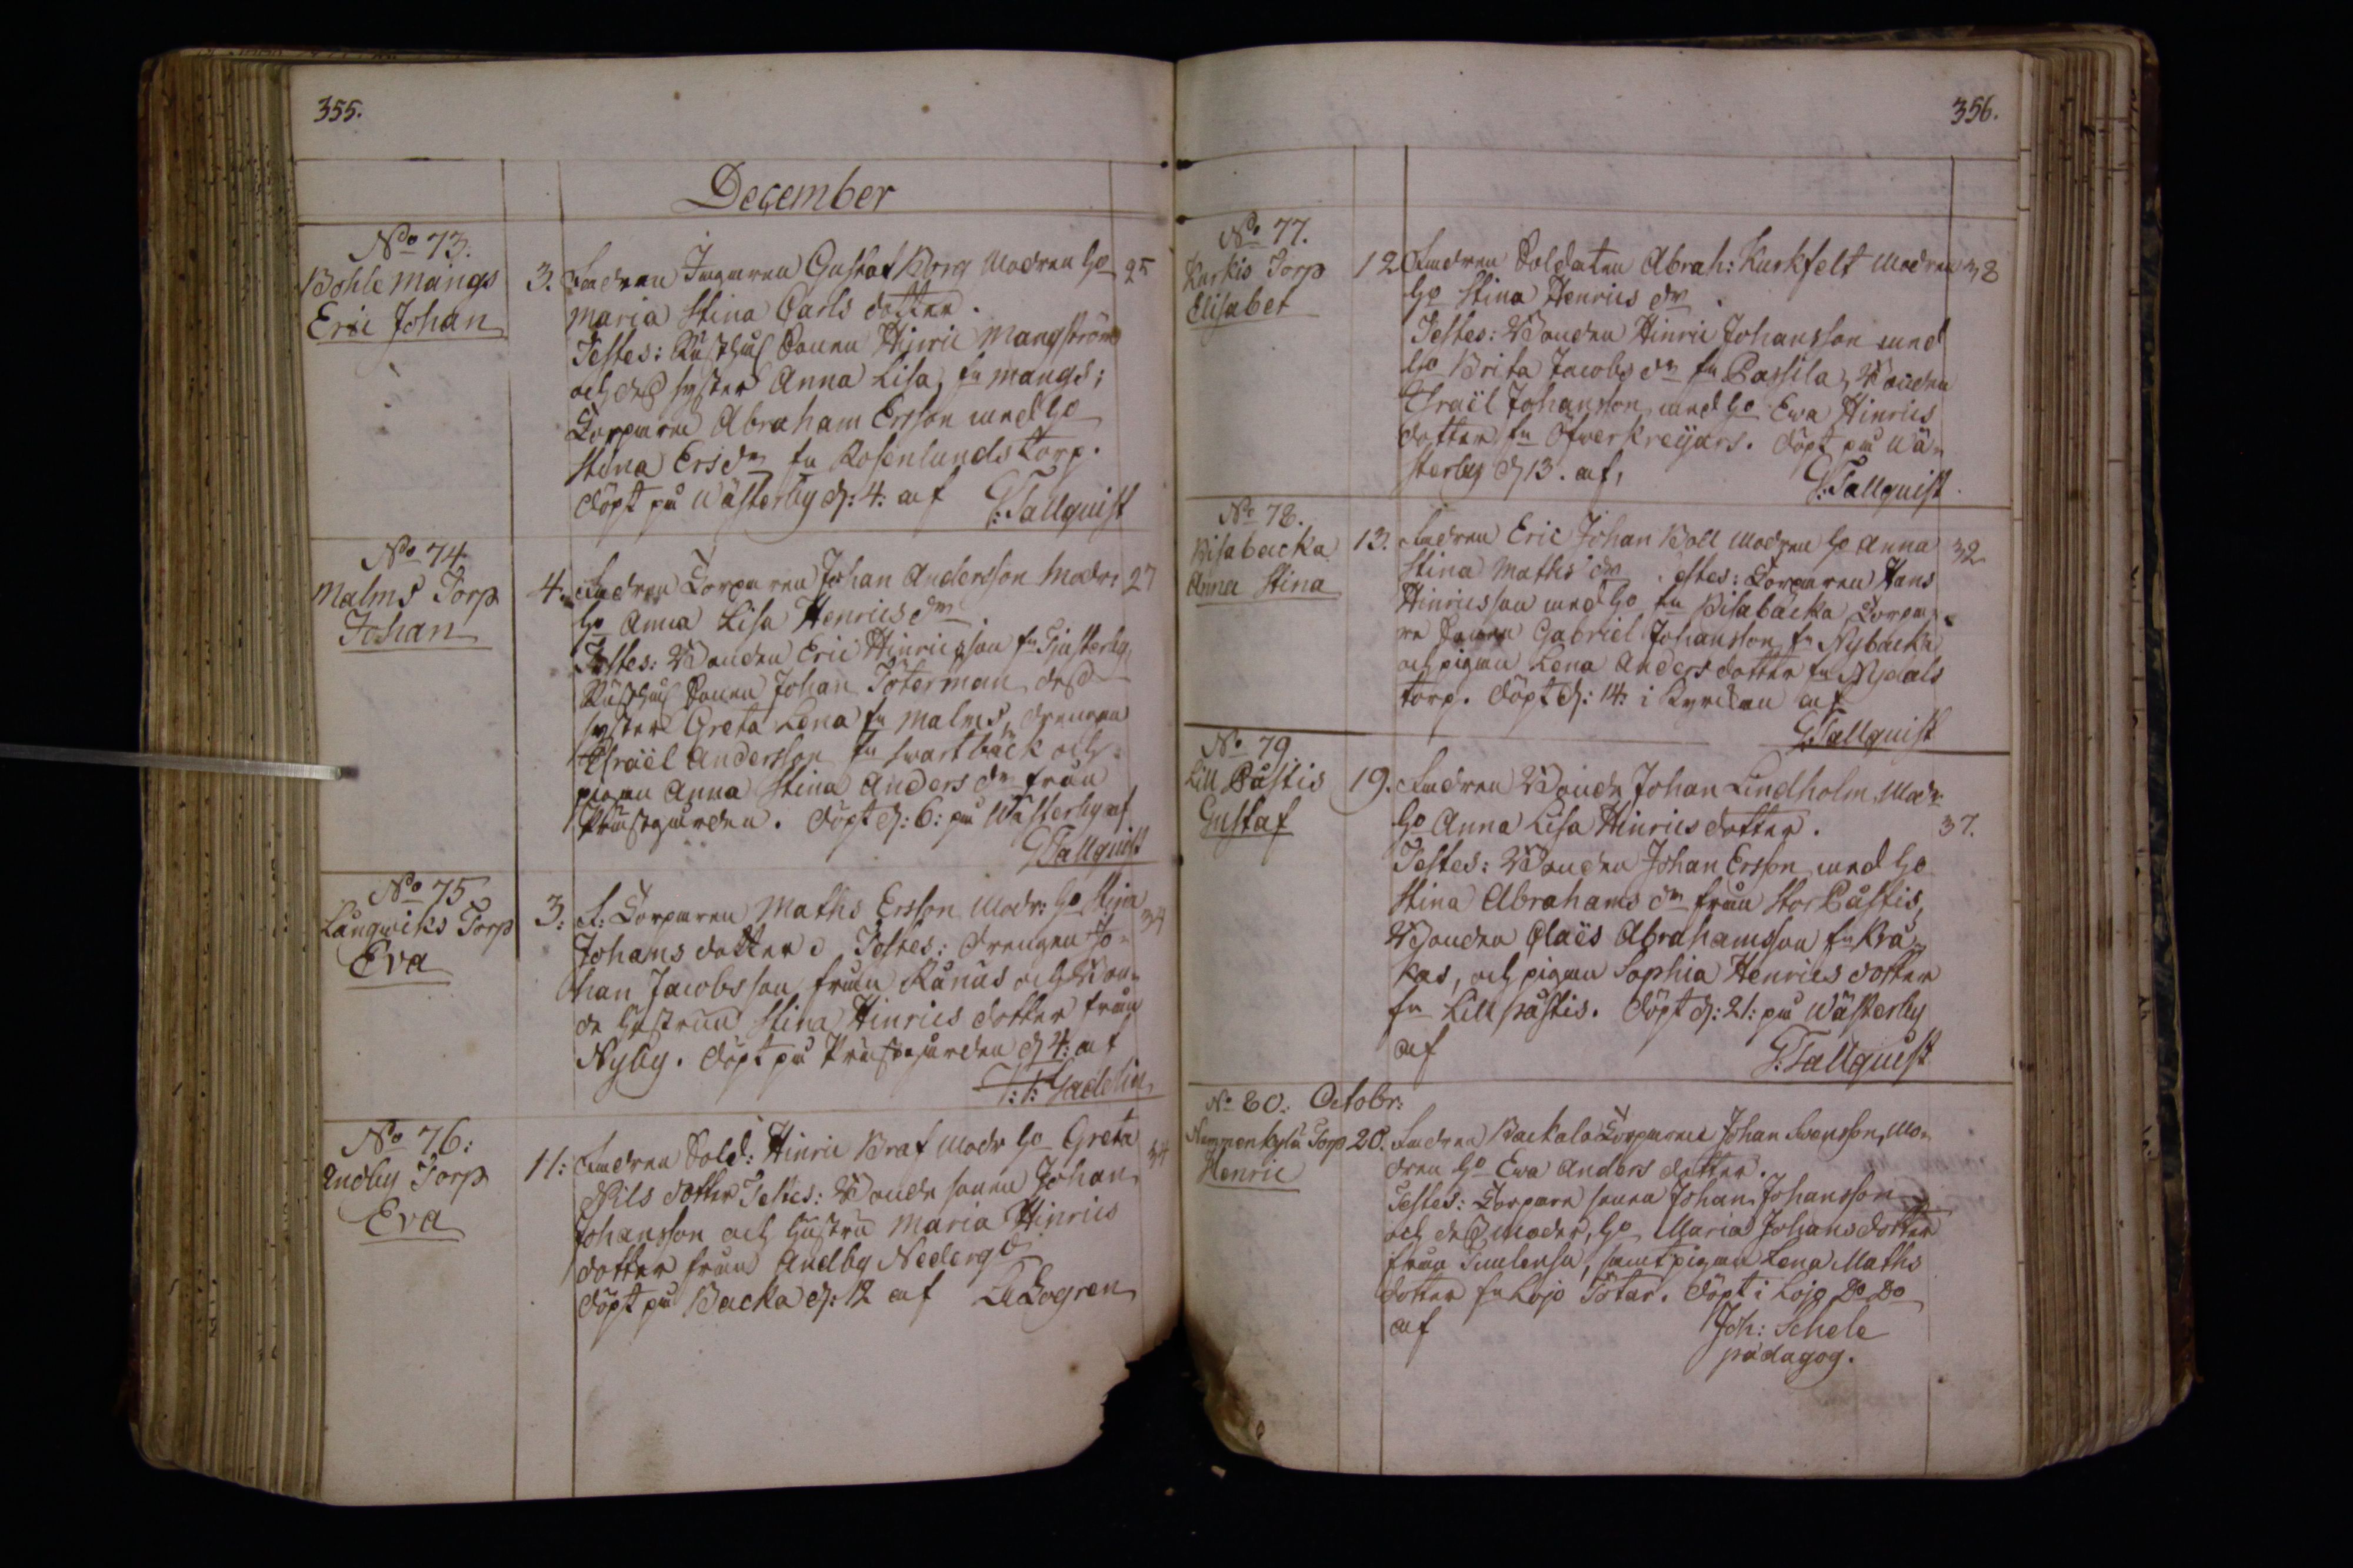 355.
December
No 73.
Bohle Mangs
Eric Johan
3. Fadren Jngaren Gustaf Borg Modren Ho 25
Maria Stina Carls dotter.
Testes: Rusthåls Sonen Hinric Mangström
och dess syster Anna Lisa, fn Mangs;
Torparen Abraham Ersson med Ho
Stina Ersdr fn Rosenlunds torp.
döpt på Wästerby d: 4: af G: Tallquist
No 74.
Malms Torp
Johan
4. Fadren Torparen Johan Andersson Modr: 27
Ho Anna Lisa Henrics dr
Testes: Bonden Eric Hinricsson fn Gjästerby,
Rusthåls Sonen Johan Töterman, dess
syster Greta Lena fn Malms, drengen
Israël Andersson fn Swartbäck och
pigan Anna Stina Anders dr från
Prästgården. döpt d: 6: på Wästerby af
G Tallquist
No 75
Långwiks Torp
Eva
3: F: Torparen Maths Ersson Modr: Ho Stina 34
Johans dotter. Testes: drengen Jo-
han Jacobsson från Rånäs och Bon-
de hustrun Stina Hinrics dotter från
Nyby. döpt på Prästgården d 4: af
Gadolin
No 76:
Andby Torp
Eva
11: Fadren Sold: Hinric Braf Modr Ho Greta 34
Nils dotter Testes: Bonde sonen Johan
Johansson och hustru Maria Hinrics
dotter från Andby Nedergd
döpt på Backa d: 12 af Bogren
356.
No 77.
Kurkis Torp
Elisabet
12 Fadren Soldaten Abrah: Kurkfelt Modren 38
Ho Stina Henrics dr.
Testes: Bonden Hinric Johansson med
Ho Brita Jacobs dr fn Passila, Bonden
Israël Johansson med Ho Ewa Hinrics
dotter fn Öfwerkreijars. döpt på Wä-
sterby d 13. af, G: Tallquist.
No 78.
Bisabacka
Anna Stina
13. Fadren Eric Johan Boll Modren Ho Anna 32
Stina Maths dr. estes: Torparen Hans
Hinricsson med Ho fn Bisabacka, Torpa-
re Sonen Gabriel Johansson fn Nybacka
och pigan Lena Andersdotter fn Nydals
torp. döpt d: 14: i Kyrckan af
G Tallquist
No 79.
Lill Påstis
Gustaf
19. Fadren Bonde Johan Lindholm, Modr
Ho Anna Lisa Hinricsdotter. 37.
Testes: Bonden Johan Ersson med Ho
Stina Abrahams dr från Stor Påstis,
Bonden Claës Abrahamsson fn Krå-
kas, och pigan Sophia Henrics dotter
fn Lill påstis. döpt d: 21: på Wästerby
af G: Tallquist
No 80: Octobr:
Nummenkylä Torp
Henric
20. Fadren Backstu Torparen Johan Svensson, Mo-
dren Ho Ewa Anders dotter.
Testes: Torpare sonen Johan Johansson
och dess Moder, Ho Maria Johansdotter
från, samt pigan Lena Maths
dotter fn Lojo Tötar. döpt i Lojo Do Do
af Joh: Schele
pädagog.